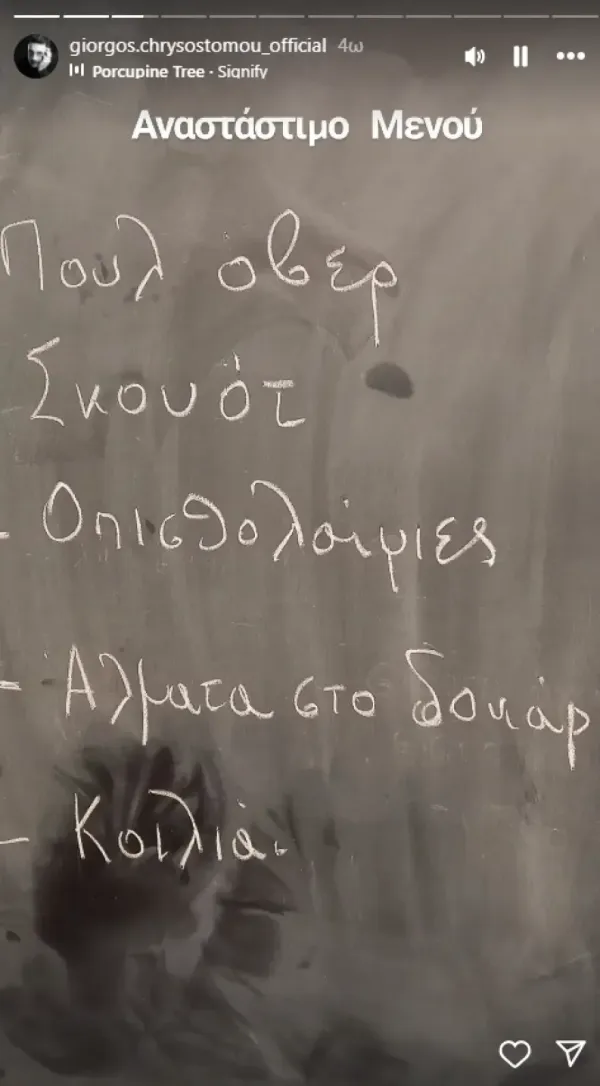 giorgos.chrysostomou_official 4ω
Porcupine Tree · Signify
Αναστάστιμο Μενού
Πουλ όβερ
Σκουότ
- Οπισθολαίμιες
- Άλματα στο δοκάρ
- Κοιλιά